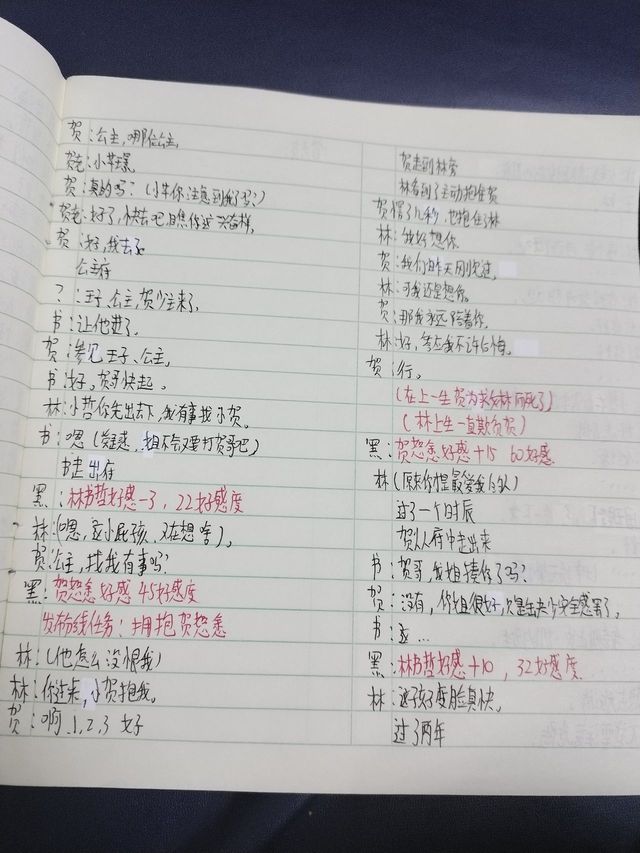 贺:公主,哪位公主,
贺老:小苹璟,
贺:真的吗?(小苹你注意到我了吗?)
贺老:好了,快去吧,且焦你还兴奋样,
贺:好,我去了
公主府
?:王子、公主,贺少主来了,
书:让他进了,
贺:参见王子、公主,
书:好,贺哥快起,
林:小哲你先出去下,我有事找小贺,
书:嗯(疑惑,我姐不会又要打贺哥吧)
书走出府
黑:林书哲好感-3,22好感度
林:(嗯,这小屁孩,又在想啥),
贺:公主,找我有事吗?
黑:贺恕恙好感45好感度
发布分线任务:拥抱贺恕恙
林:(他怎么没恨我)
林:你过来,小贺抱我,
贺:啊,1,2,3好
贺走到林旁
林看到了主动抱住贺
贺愣了几秒,也抱住了林
林:我好想你,
贺:我们昨天刚见过,
林:可我还是想你,
贺:那我永远陪着你,
林:好,答应我不许后悔,
贺:行。
(在上一生贺为求救林而死了)
(林上生一直欺负贺)
黑:贺恕恙好感+15 60好感
林(原来你才是最爱我的人)
过了一个时辰
贺从府中走出来
书:贺哥,我姐揍你了吗?
贺:没有,你姐很好,只是出来少安全感罢了,
书:这...
黑:林书哲好感+10,32好感度
林:这孩子变脸真快,
过了两年